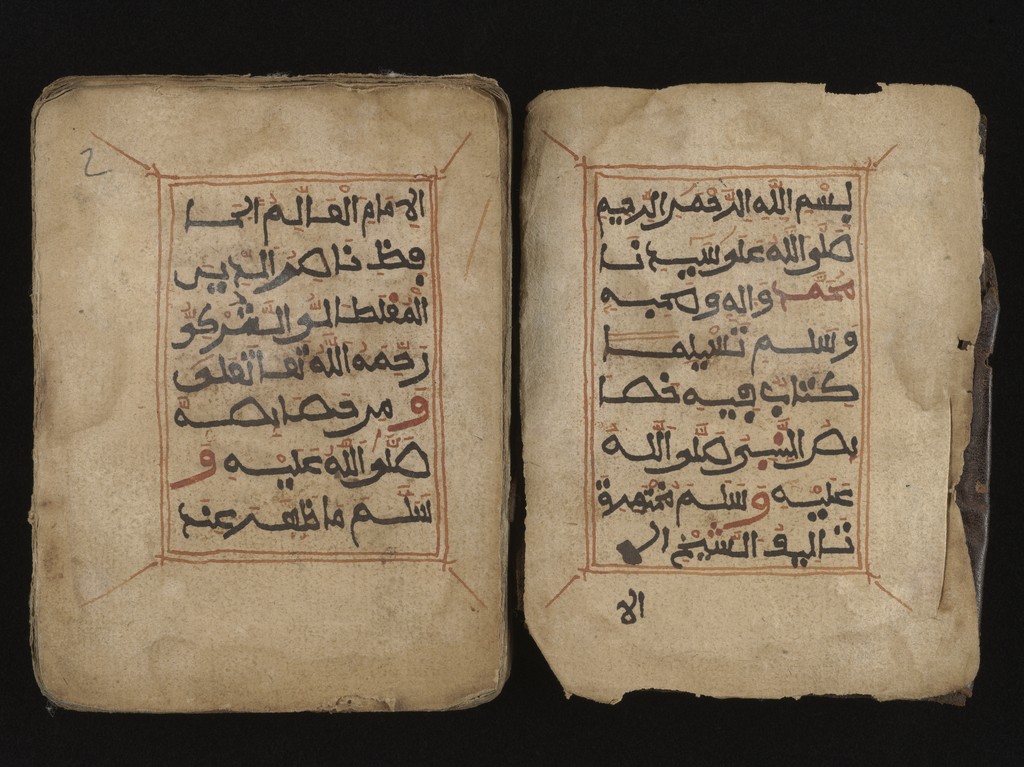 بسم الله الرحمن الرحيم
صلى الله على سيدنا
محمد واله وصحبه
وسلم تسليما
كتاب فيه خصا
ئص النبي صلى الله
عليه وسلم مختصرة
تاليف الشيخ الا
الا
2
الامام العالم الحا
فظ ناصر الدين
المغلطاى التركى
رحمه الله تعا تعلى
و من خصايصه
صلى الله عليه و
سلم ما ظهر عند